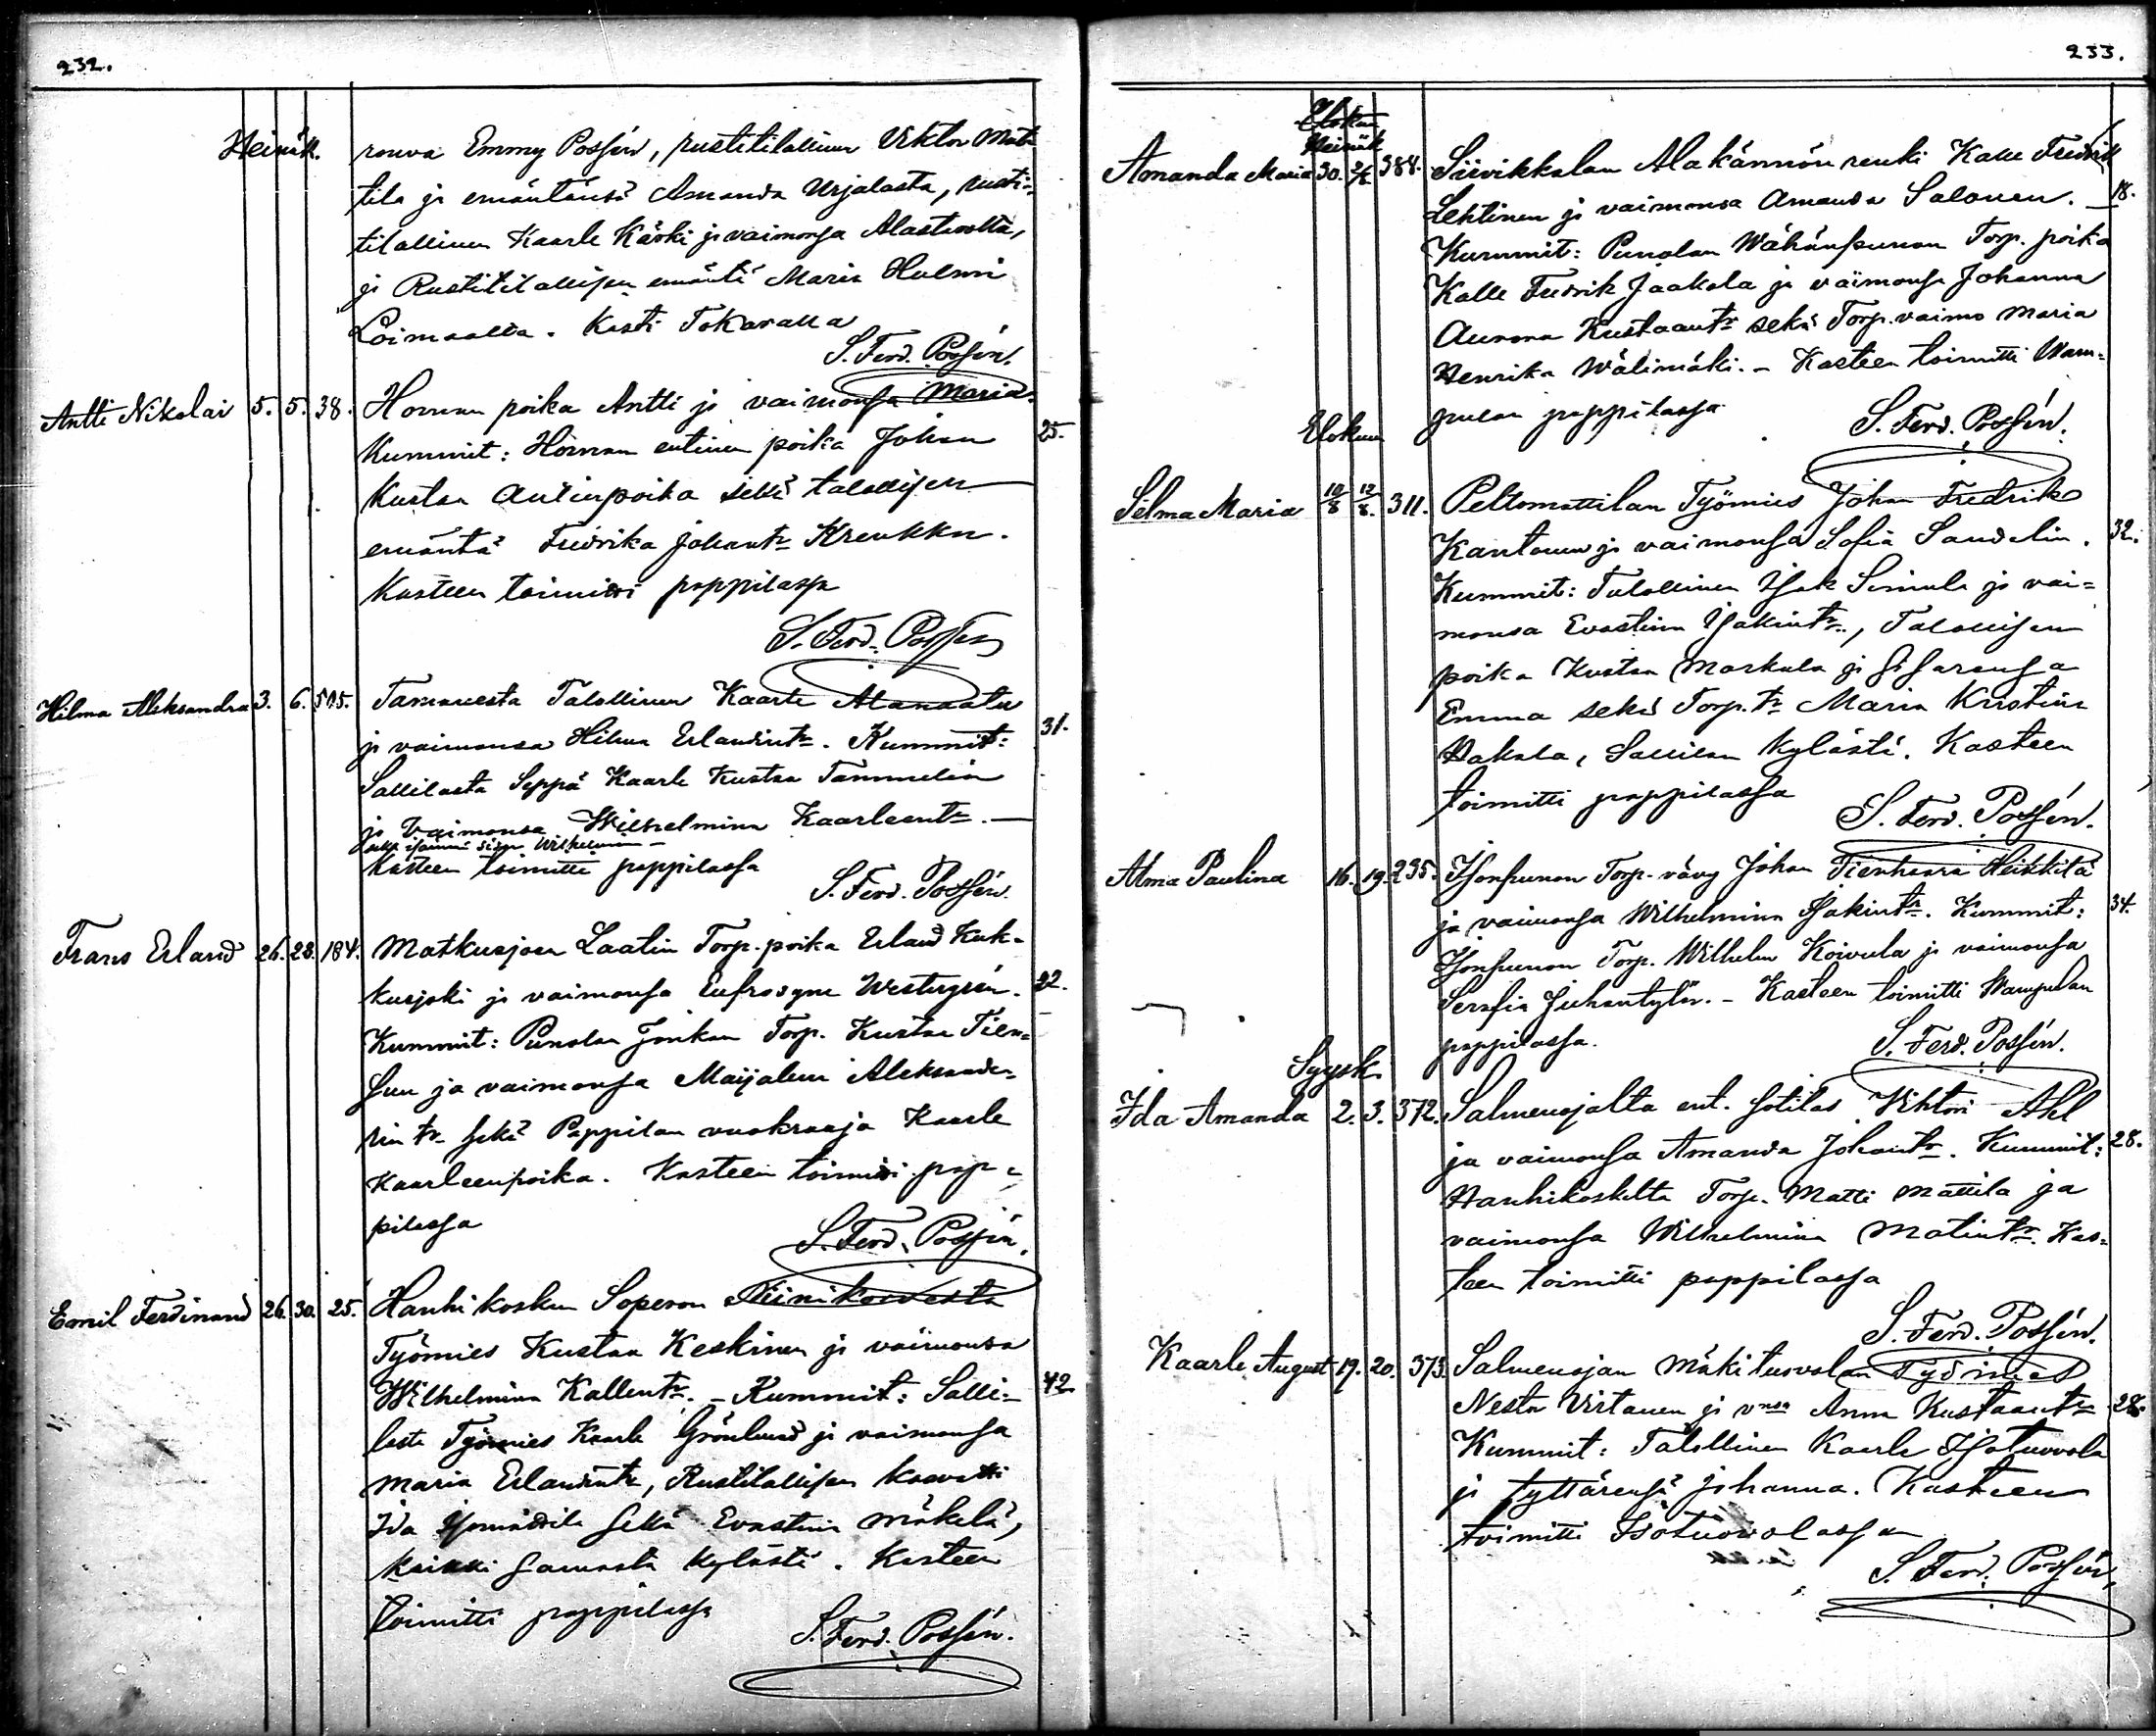 232.
Heinäk. rouva Emmy Possén, rustitilallinen Viktor Matti
tila ja emäntänsä Amanda Urjalasta, rusti-
tilallinen Kaarle Kärki ja vaimonsa Alastarolta,
ja Rustitilallisen emäntä Maria Hulmi
Loimaalta. Kasti Tokavalla
S. Ferd. Possén.
Antti Nikolai 5. 5. 38. Hornan poika Antti ja vaimonsa Maria.
Kummit: Hornan entinen poika Johan 25.
Kustaa Antinpoika sekä talollisen
emäntä Fredrika Johantr Krenkku.
Kasteen toimitti pappilassa
S. Ferd. Possén
Hilma Aleksandra 3. 6. 515. Tamaresta Talollinen Kaarle Alanaatu
ja vaimonsa Hilma Erlandintr. Kummit: 31.
Sallilasta Seppä Kaarle Kustaa Tammelin
ja Vaimonsa Wilhelmina Kaarleentr.
sekä Wilhelmina
Kasteen toimitti pappilassa
S. Ferd. Possén.
Frans Erland 26. 28. 184. Matkusjoen Laatin Torp. poika Erland Kuk-
kusjoki ja vaimonsa Eufrosyne Westergrén. 22.
Kummit: Punolan Jonkan Torp. Kustaa Tien-
suu ja vaimonsa Maijalena Aleksande-
rin tr sekä Pappilan vuokraaja Kaarle
Kaarleenpoika. Kasteen toimitti pap-
pilassa
S. Ferd. Possén.
Emil Ferdinand 26. 30. 25. Hanhikosken Soperon Niinikorvesta
Työmies Kustaa Keskinen ja vaimonsa
Wilhelmina Kallentr. - Kummit: Salli- 42
lasta Työmies Kaarle Grönlund ja vaimonsa
Maria Erlandintr, Rustitallisen
Ida sekä Evastina Mäkelä,
kaikki samasta kylästä. Kasteen
toimitti pappilassa
S. Ferd. Possén.
233.
Elokuu
Heinäk
Amanda Maria 30. 2/8 384. Siivikkalan Alakännön renki Kalle Fredrik
Lehtinen ja vaimonsa Amanda Salonen. 18.
Kummit: Punolan Wähänpunon Torp. poika
Kalle Fredrik Jaakola ja vaimonsa Johanna
Aurora Kustaantr sekä Torp. vaimo Maria
Henrika Wälimäki. - Kasteen toimitti Wam-
pulan pappilassa
Elokuu S. Ferd. Possén.
Selma Maria 10/8 12/8. 311. Peltomattilan Työmies Johan Fredrik
Kantonen ja vaimonsa Sofia Sandelin. 32.
Kummit: Talollinen Isak Simula ja vai-
monsa Evastina Isakintr., Talollisen
poika Kustaa Markula ja sisarensa
Emma sekä Torp. tr Maria Kristina
Hakala, Sallilan kylästä. Kasteen
toimitti pappilassa
S. Ferd. Possén.
Alma Paulina 16. 19. 235. Isonpunon Torp. vävy Johan Tienhaara Heikkilä
ja vaimonsa Wilhelmina Isakintr. Kummit: 34.
Isonpunon Torp. Wilhelm Koivula ja vaimonsa
Serafia Juhantytär. - Kasteen toimitti Wampulan
pappilassa. S. Ferd. Possén.
Syysk.
Ida Amanda 2. 3. 372. Salmenojalta ent. sotilas Vihtori Ahl
ja vaimonsa Amanda Johantr. Kummit: 28.
Hanhikoskelta Torp. Matti Mattila ja
vaimonsa Wilhelmina Matintr. Kas-
teen toimitti pappilassa
S. Ferd. Possén.
Kaarle August 19. 20. 373. Salmenojan Mäkitusvolan Työmies
Nesta Virtanen ja vnsa Anna Kustaantr 28.
Kummit: Talollinen Kaarle Isotuovola
ja tyttärensä Johanna. Kasteen
toimitti Isotuovolassa
S. Ferd. Possén.